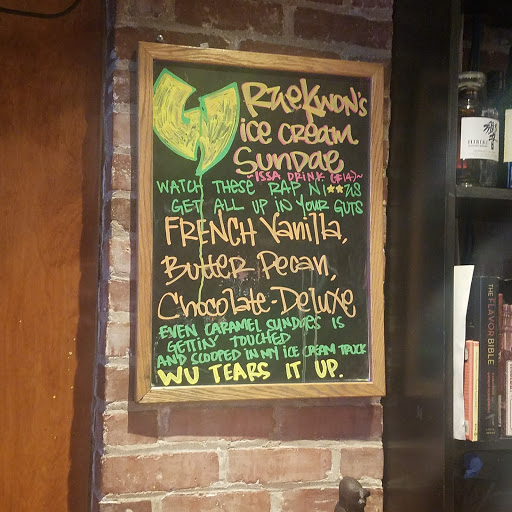 RaeKwon's
ice cream
Sundae
~ISSA DRINK (#14)~
WATCH THESE RAP NI**ZIS
GET ALL UP IN YOUR GUTS
FRENCH Vanilla,
Butter Pecan,
Chocolate-Deluxe
EVEN CARAMEL SUNDAES IS
GETTIN' TOUCHED
AND SCOOPED IN MY ICE CREAM TRUCK
WU TEARS IT UP.
HIBIKI
THE FLAVOR BIBLE